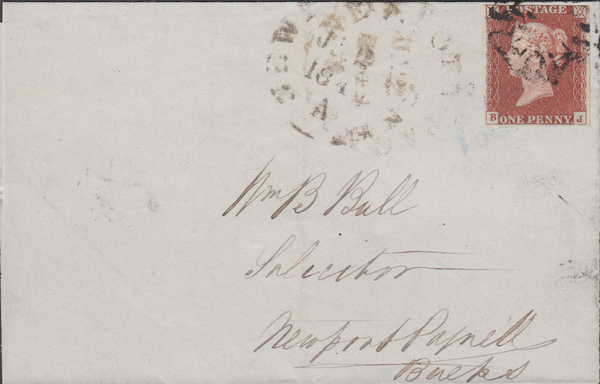 POSTAGE
B ONE PENNY J
Wm B Bull
Solicitor
Newport Pagnell
Bucks